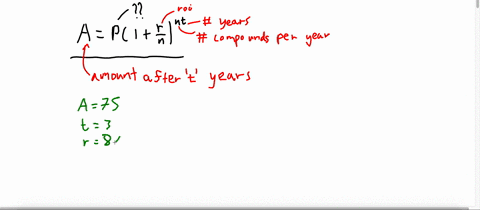 ?? roi
A = P(1 + r/n)^nt # years
# compounds per year
amount after 't' years
A = 75
t = 3
r = 8